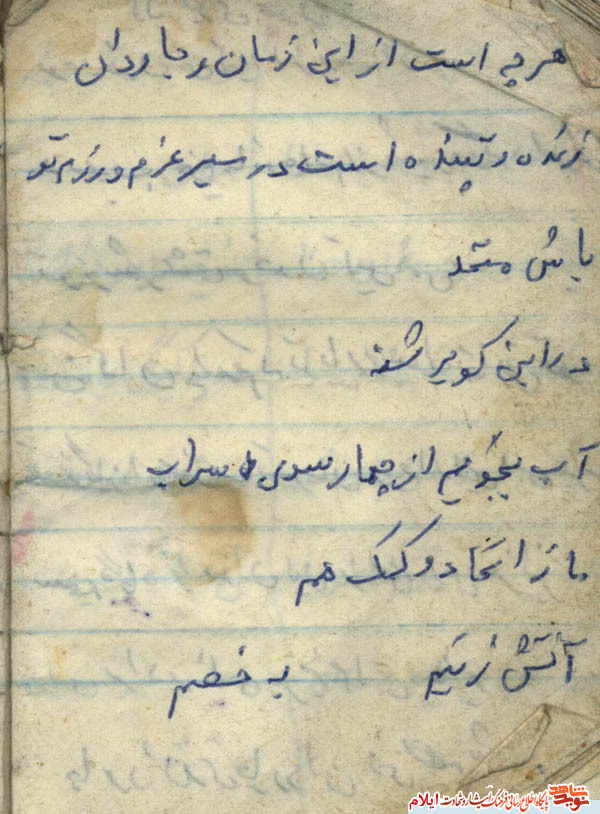 هر چه است از این زمان و جاودان
زنده و تپنده است در سیر عزم و رزم تو
باش متحد
در این کویر تشنه
آب بجوئیم از چهار سوی سراب
باز اتحاد و کمک هم
آتش زنیم به خصم
نوید شاهد پایگاه اطلاع رسانی فرهنگ ایثار و شهادت ایلام